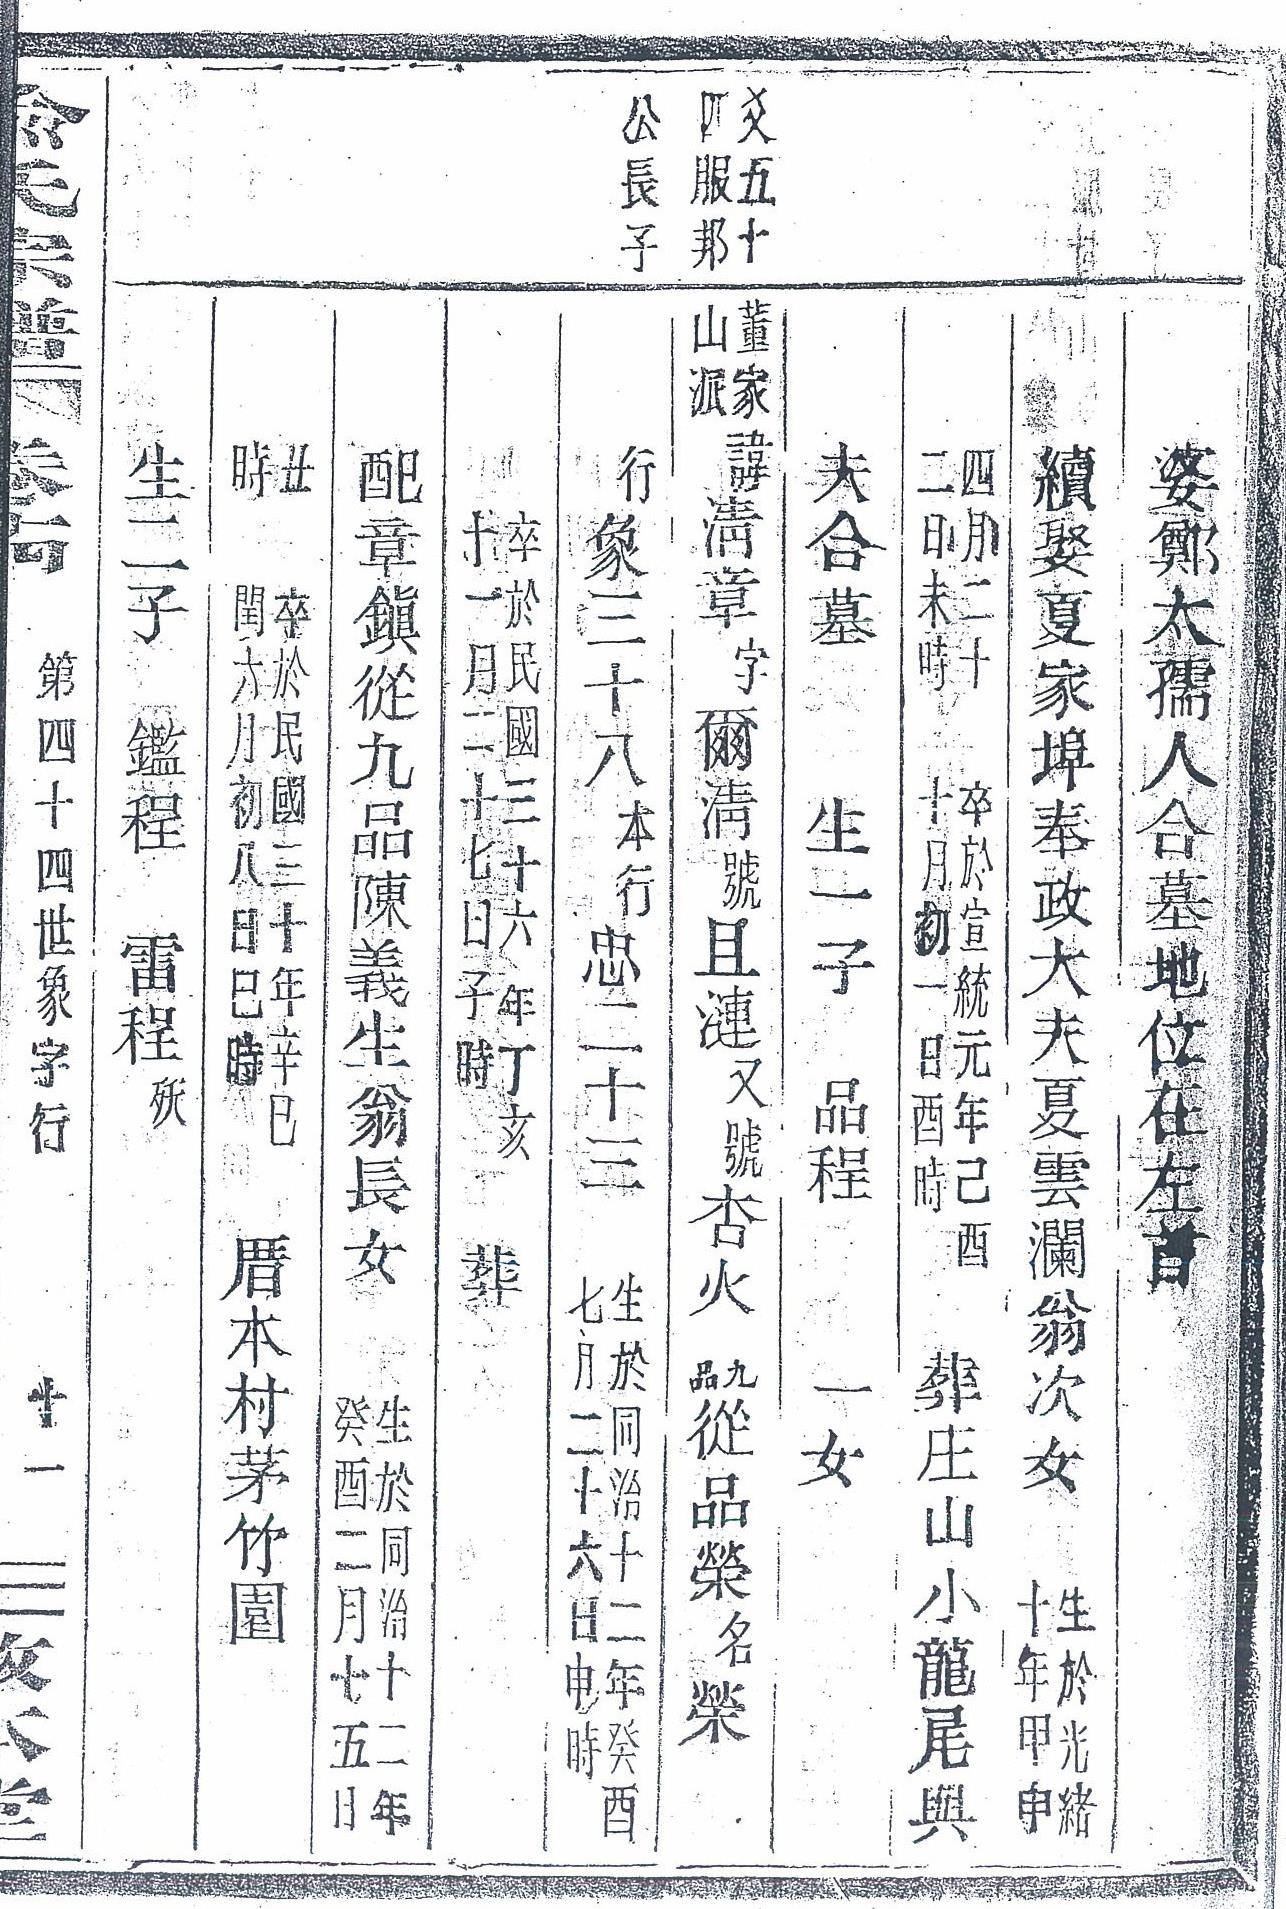 婆鄭太孺人合墓地位在左首
續娶夏家埠奉政大夫夏雲瀾翁次女 生於光緒
十年甲申
四月二十
二日未時 卒於宣統元年己酉
十月初一日酉時 葬庄山小龍尾與
夫合墓 生一子 品程 一女
父五十
四服邦
公長子
董家
山派 諱淸章字爾淸號且漣又號杏火 九
品 從品榮名榮
行象三十八本行忠二十三 生於同治十二年癸酉
七月二十六日申時
卒於民國三十六年丁亥
十一月二十七日子時 葬
配章鎭從九品陳義生翁長女 生於同治十二年
癸酉二月七五日
丑
時 卒於民國三十年辛巳
閏六月初八日巳時 厝本村茅竹園
生二子 鑑程 雷程 殀
宗譜 卷 第四十四世象字行 十一 本堂